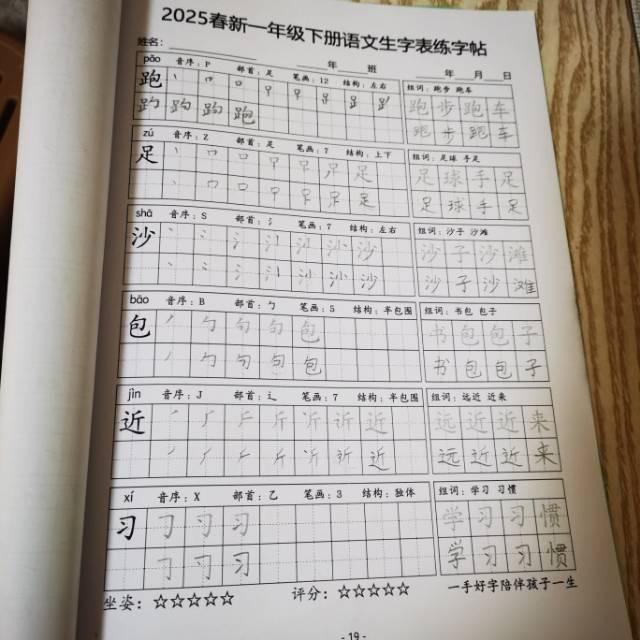 2025春新一年级下册语文生字表练字帖
姓名： 年 班 年 月 日
pǎo 音序：P 部首：足 笔画：12 结构：左右 组词：跑步 跑车
跑 跑步跑车
跑步跑车
zú 音序：Z 部首：足 笔画：7 结构：上下 组词：足球 手足
足 足球手足
足球手足
shā 音序：S 部首：氵 笔画：7 结构：左右 组词：沙子 沙滩
沙 沙子沙滩
沙子沙滩
bāo 音序：B 部首：勹 笔画：5 结构：半包围 组词：书包 包子
包 书包包子
书包包子
jìn 音序：J 部首：辶 笔画：7 结构：半包围 组词：远近 近来
近 远近近来
远近近来
xí 音序：X 部首：乙 笔画：3 结构：独体 组词：学习 习惯
习 学习习惯
学习习惯
坐姿：☆☆☆☆☆ 评分：☆☆☆☆☆ 一手好字陪伴孩子一生
- 19 -